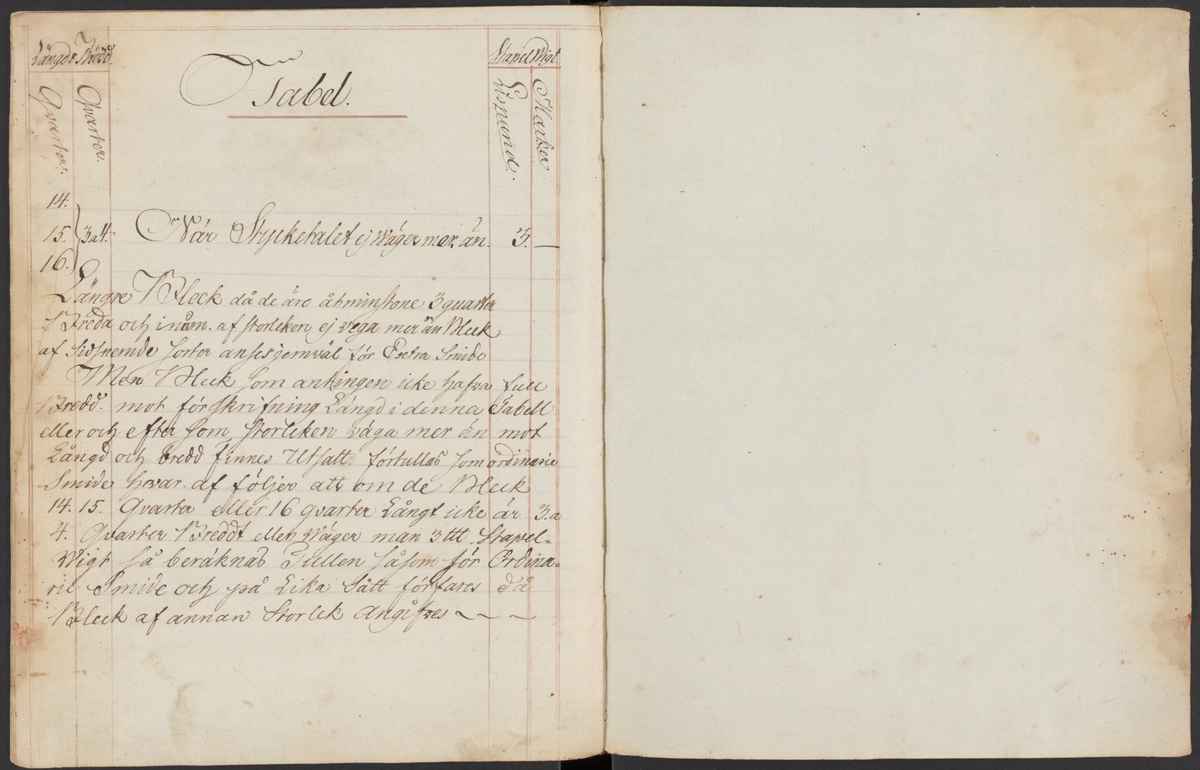 Längd Bredd
Stapel Wigt
Qvarter.
Qvarter.
Tabel.
Lispund.
Marker
14.
15. 3 a 4. När Stycketalet ej Wäger mer än. 3. —
16.
Längre Bleck då de äro åtminstone 3 quarter
Breda och inom. af storleken ej väga mer än Bleck
af sorter anses jemväl för Extra Smide
Men Bleck som antingen icke hafva full
Bredd. mot förskrifning Längd i denna Tabell
eller och efter som Storleken väga mer än mot
Längd och bredd finnes Utsatt. förtullas som ordinarie
Smide hvar. af följer att om de Bleck
14. 15. Qvarter eller 16 qvarter Långt icke är 3. a
4. Qvarter Bredt eller Wäger man 3 ttt. Stapel-
Wigt så beräknas Tullen såsom för Ordina-
rie Smide och på Lika Sätt förfares då
Bleck af annan Storlek Angifves